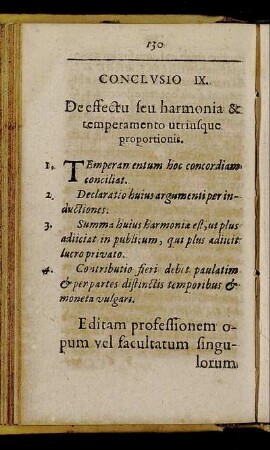 130
CONCLVSIO IX.
De effectu seu harmonia &
temperamento utriusque
proportionis.
1. TEmperamentum hoc concordiam
conciliat.
2. Declaratio huius argumenti per in-
ductiones.
3. Summa huius harmoniæ est, ut plus
adiiciat in publicum, qui plus adiicit
lucro privato.
4. Contributio fieri debet paulatim
& per partes distinctis temporibus &
moneta vulgari.
Editam professionem o-
pum vel facultatum singu-
lorum